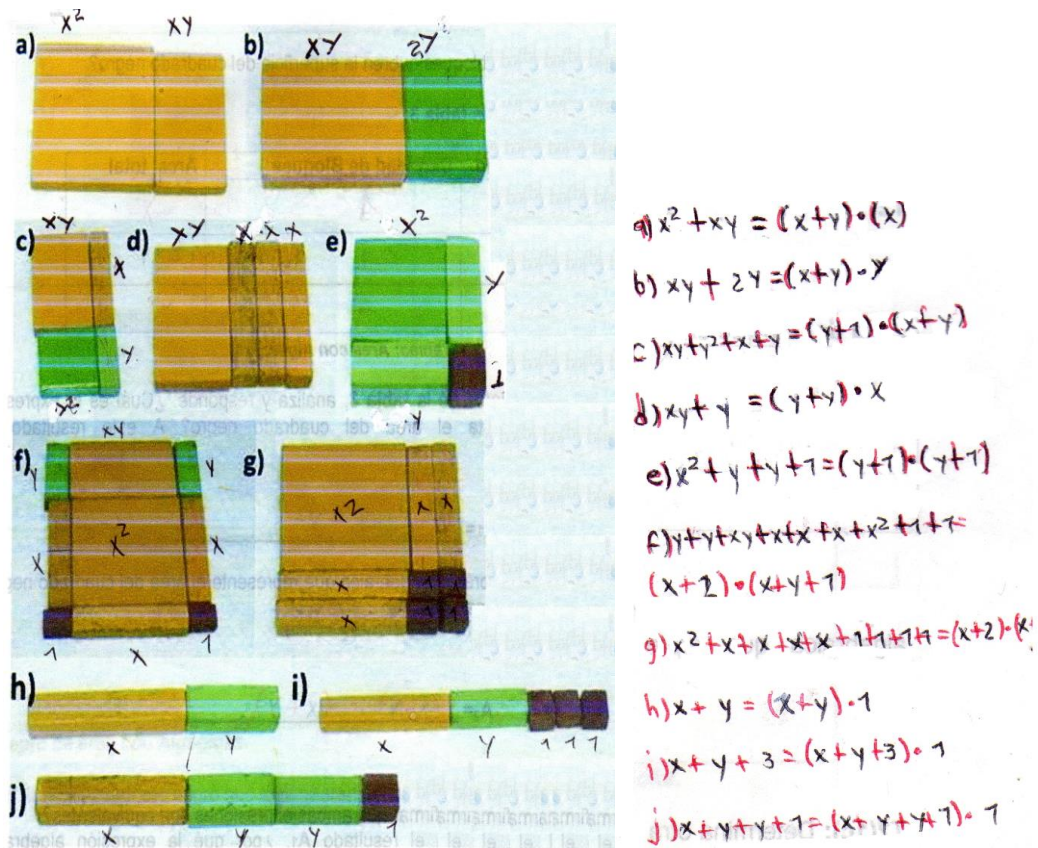 x² xy
a)
xy 2y
b)
xy
c) x
y
xy x x x
d)
x²
e) y
1
xy
f) y y
x x² x
1 x 1
y
g)
x² x x
x 1 1
x 1 1
h)
x y
i)
x y 1 1 1
j)
x y y 1
a) x² + xy = (x+y)·(x)
b) xy + 2y = (x+y)·y
c) xy+y²+x+y = (y+1)·(x+y)
d) xy+y = (y+y)·x
e) x² + y + y + 1 = (y+1)·(y+1)
f) y+y+xy+x+x+x+x²+1+1=
(x+2)·(x+y+1)
g) x²+x+x+x+x+1+1+1+1=(x+2)·(x
h) x + y = (x+y)·1
i) x + y + 3 = (x+y+3)·1
j) x+y+y+1=(x+y+y+1)·1